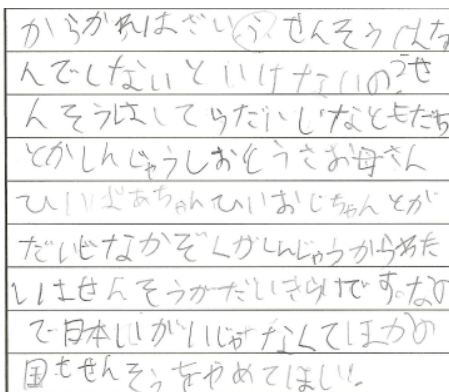 からかれはざいう、せんそうはな
んでしないといけないの?うせ
んそうはしてらだいじなともだち
とかしんじゃうしおとうさお母さん
ひいばあちゃんひいおじちゃんとか
だいじなかぞくがしんじゃうからわた
しはせんそうがだいきらいです。なの
で日本いがいじゃなくてほかの
国もせんそうをやめてほしい!